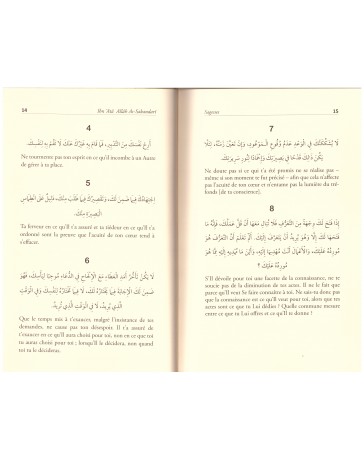 14
Ibn 'Atâ' Allâh As-Sakandarî
4
أَرِحْ نَفْسَكَ مِنَ التَّدْبِيرِ، فَمَا قَامَ بِهِ غَيْرُكَ عَنْكَ لَا تَقُمْ بِهِ لِنَفْسِكَ.
Ne tourmente pas ton esprit en ce qu'il incombe à un Autre
de gérer à ta place.
5
اجْتِهَادُكَ فِيمَا ضُمِنَ لَكَ، وَتَقْصِيرُكَ فِيمَا طُلِبَ مِنْكَ، دَلِيلٌ عَلَى انْطِمَاسِ
الْبَصِيرَةِ مِنْكَ.
Ta ferveur en ce qu'il t'a assuré et ta tiédeur en ce qu'il t'a
ordonné sont la preuve que l'acuité de ton cœur tend à
s'effacer.
6
لَا يَكُنْ تَأَخُّرُ أَمَدِ الْعَطَاءِ مَعَ الْإِلْحَاحِ فِي الدُّعَاءِ مُوجِبًا لِيَأْسِكَ، فَهُوَ
ضَمِنَ لَكَ الْإِجَابَةَ فِيمَا يَخْتَارُهُ لَكَ، لَا فِيمَا تَخْتَارُهُ لِنَفْسِكَ، وَفِي الْوَقْتِ
الَّذِي يُرِيدُ، لَا فِي الْوَقْتِ الَّذِي تُرِيدُ.
Que le temps mis à t'exaucer, malgré l'insistance de tes
demandes, ne cause pas ton désespoir. Il t'a assuré de
t'exaucer en ce qu'Il aura choisi pour toi, non en ce que
toi tu aurais choisi pour toi ; lorsqu'Il le décidera, non quand
toi tu le décideras.
Sagesses
15
7
لَا يُشَكِّكَنَّكَ فِي الْوَعْدِ عَدَمُ وُقُوعِ الْمَوْعُودِ، وَإِنْ تَعَيَّنَ زَمَنُهُ، لِئَلَّا
يَكُونَ ذَلِكَ قَدْحًا فِي بَصِيرَتِكَ وَإِخْمَادًا لِنُورِ سَرِيرَتِكَ.
Ne doute pas si ce qui t'a été promis ne se réalise pas –
même au moment précisé – afin que cela n'affecte
pas l'acuité de ton cœur et n'amenuise pas la lumière du tréfo-
(de ta conscience).
8
إِذَا فَتَحَ لَكَ وِجْهَةً مِنَ التَّعَرُّفِ فَلَا تُبَالِ مَعَهَا أَنْ قَلَّ عَمَلُكَ، فَإِنَّهُ مَا
فَتَحَهَا لَكَ إِلَّا وَهُوَ يُرِيدُ أَنْ يَتَعَرَّفَ إِلَيْكَ. أَلَمْ تَعْلَمْ أَنَّ التَّعَرُّفَ هُوَ
مُورِدُهُ عَلَيْكَ وَالْأَعْمَالَ أَنْتَ مُهْدِيهَا إِلَيْهِ، وَأَيْنَ مَا تُهْدِيهِ إِلَيْهِ مِمَّا هُوَ
مُورِدُهُ عَلَيْكَ ؟
S'Il dévoile pour toi une facette de la connaissance, ne te
soucie pas de la diminution de tes actes, il ne l'a faite paraî-
que parce qu'Il veut Se faire connaître à toi. Ne sais-tu donc pas
que la connaissance en ce qu'Il veut pour toi, alors que tes
actes sont ce que tu Lui dédies ! Quelle commune mesure
entre ce que tu Lui offres et ce qu'Il te donne !